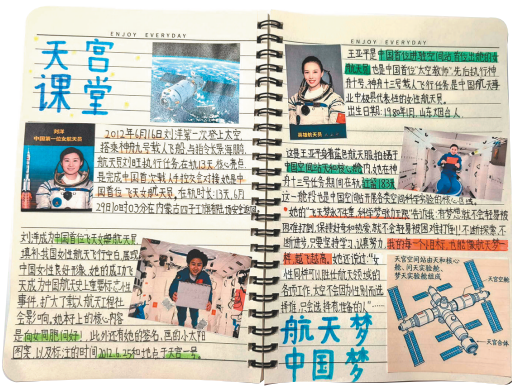 ENJOY EVERYDAY
天宫
课堂
刘洋
中国第一位女航天员
2012年6月16日刘洋第一次登上太空
搭乘神舟九号载人飞船,与指令长景海鹏
航天员刘旺执行任务,在轨13天,核心亮点
是完成中国首次载人手控交会对接,她是中
国首位飞天女航天员,在轨时长:13天,6月
29日10时03分在内蒙古四子王旗着陆场安全返回
刘洋成为中国首位飞天女航天员,
填补我国女性航天飞行空白,展现
中国女性良好形象,她的成功飞
天成为中国航天史上重要标志性
事件,扩大了载人航天工程社
会影响,她太上的核心内容
是向女同胞问好!此外还有她的签名,画的小太阳
图案以及标注的时间2012.6.25和地点于天宫一号。
ENJOY EVERYDAY
王亚平是中国首位进驻空间站首位出舱的女
航天员,也是中国首位"太空教师"先后执行神
舟十号、神舟十三号载人飞行任务,是中国航天事
业中极具代表性的女性航天员。
出生日期:1980年1月,山东烟台人
英雄航天员
这是王亚平身着蓝色航天服拍摄于
中国空间站天和核心舱内,她在神
舟十三号任务期间在轨过超183天
这一舱段也是中国空间站开展各类空间科学实验的核心区域。
她的"飞天梦永不失重,科学梦张力无限"告诉我:有梦想,就不会轻易被
困难打倒,保持好奇和热爱,就不会轻易被困难打倒!不断探索,不
断追寻,只要坚持学习,认真努力,我的每一个小目标,也能像航天梦一
样,越飞越高,她还说过:"女
性同样可以胜任航天领域的
各项工作,太空不会因为性别而选
择谁,只会选择有准备的人"……
航天梦
中国梦
天宫空间站由天和核心
舱、问天实验舱、
梦天实验舱组成
天宫空舱
天宫舱体